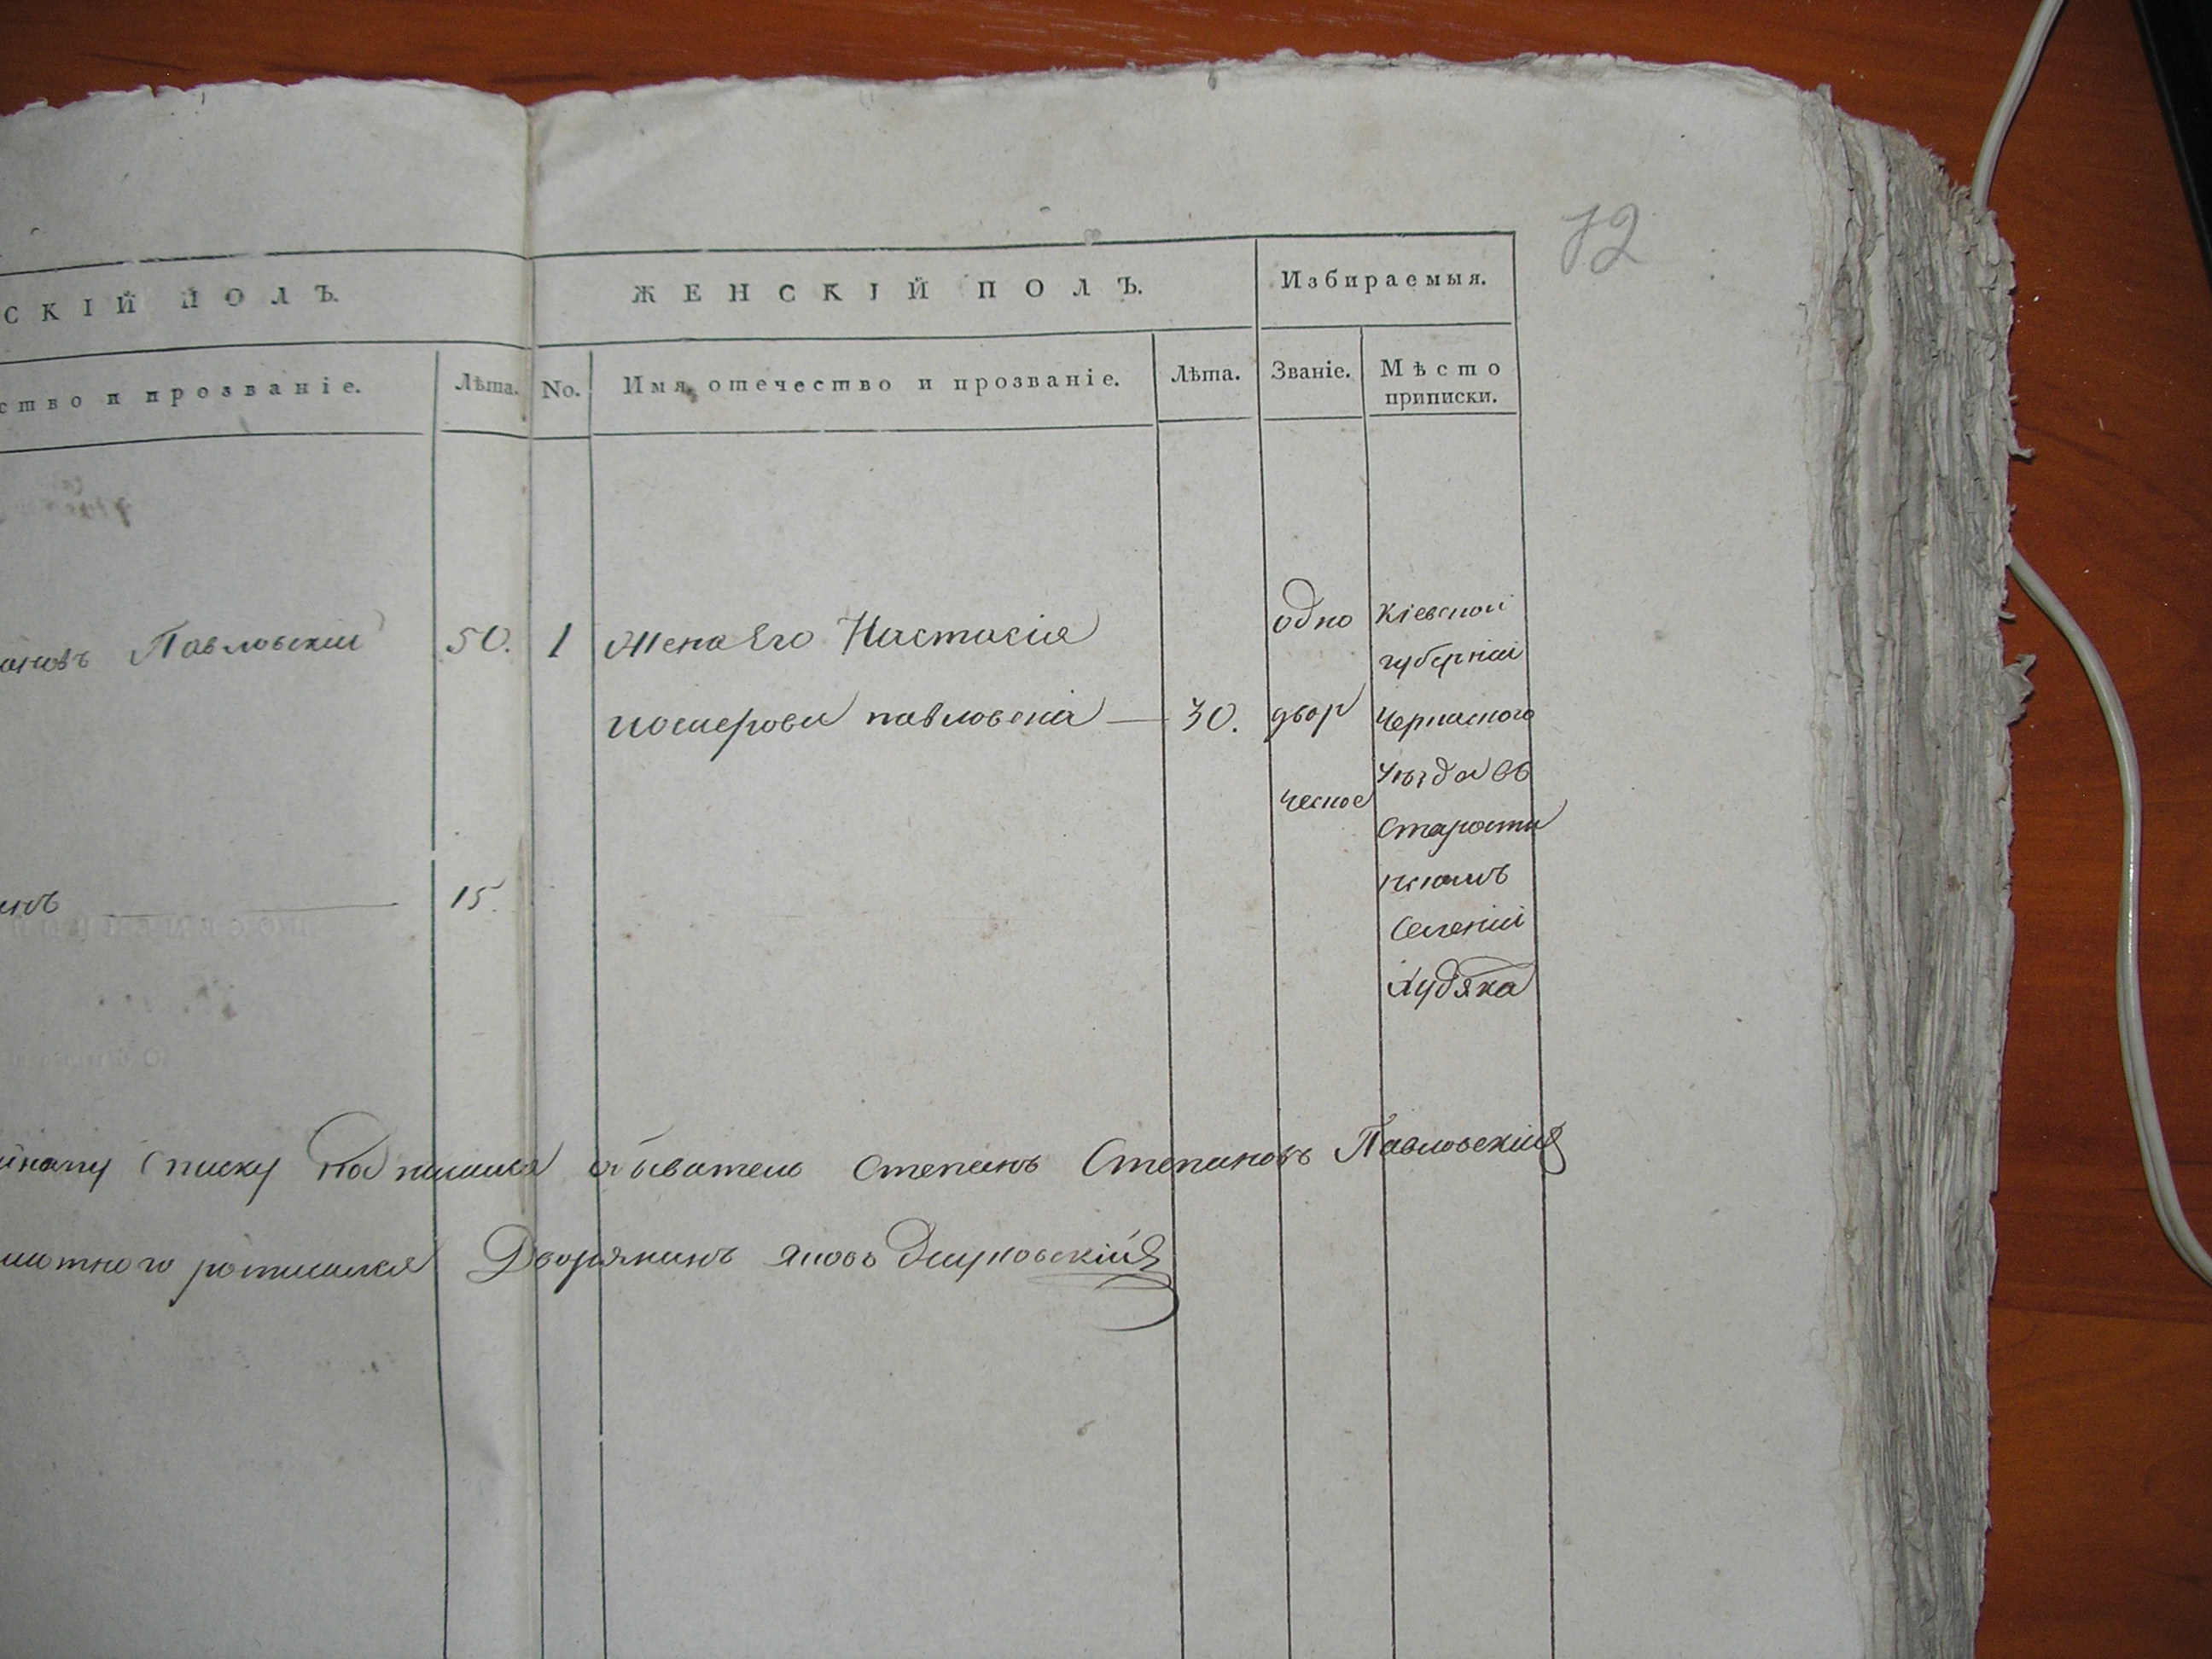 72
СКІЙ ПОЛЪ.
ЖЕНСКІЙ ПОЛЪ.
Избираемыя.
ство и прозваніе.
Лѣта.
No.
Имя, отечество и прозваніе.
Лѣта.
Званіе.
Мѣсто
приписки.
ановъ Павловскій
50.
1
Жена Его Настасія
павловска
30.
одно
двор
ческое
Кіевской
губерніи
Черкаского
уѣзда въ
старости
нскомъ
селеніи
Худяка
15.
списку подписался обыватель Степанъ Степановъ Павловскій
мотного росписался Дворянинъ Яковъ